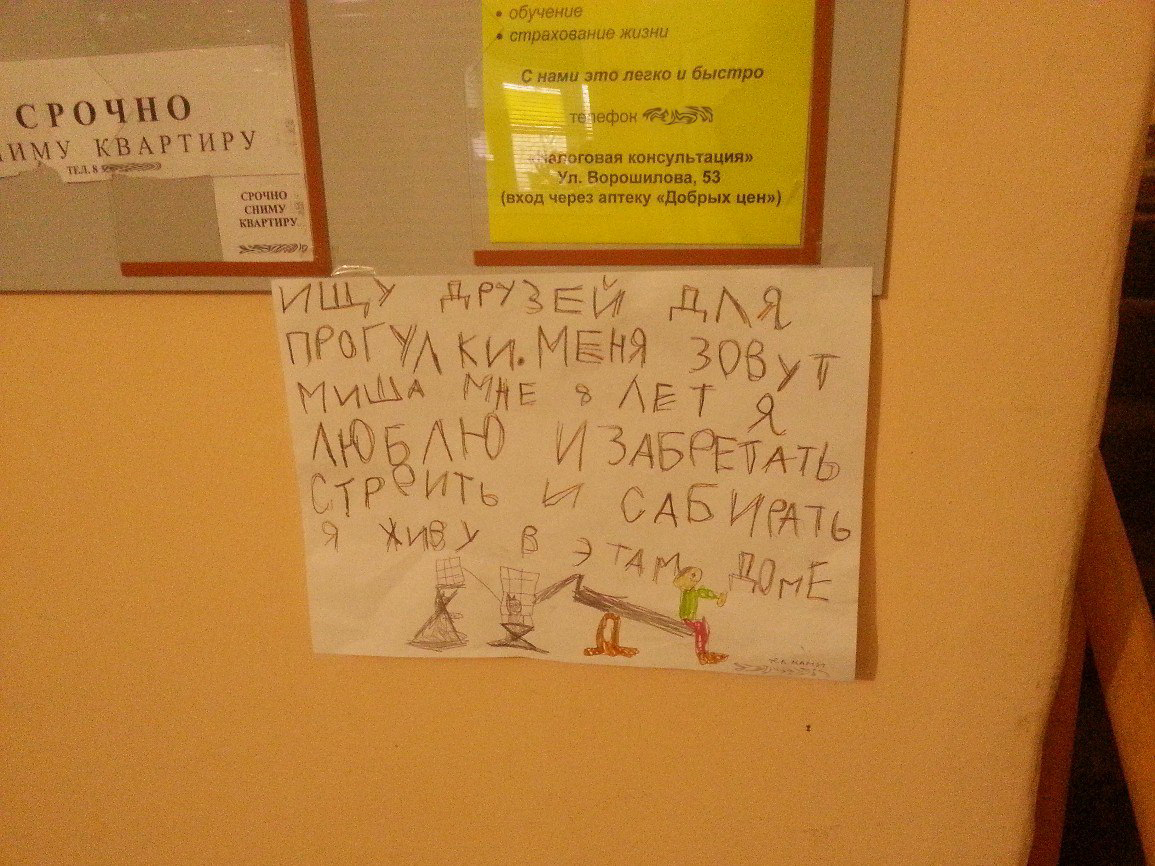 СРОЧНО
СНИМУ КВАРТИРУ
ТЕЛ. 8
СРОЧНО
СНИМУ
КВАРТИРУ
• обучение
• страхование жизни
С нами это легко и быстро
телефон
«Налоговая консультация»
Ул. Ворошилова, 53
(вход через аптеку «Добрых цен»)
ИЩУ ДРУЗЕЙ ДЛЯ
ПРОГУЛКИ. МЕНЯ ЗОВУТ
МИША МНЕ 8 ЛЕТ Я
ЛЮБЛЮ ИЗАБРЕТАТЬ
СТРОИТЬ И САБИРАТЬ
Я ЖИВУ В ЭТАМ ДОМЕ